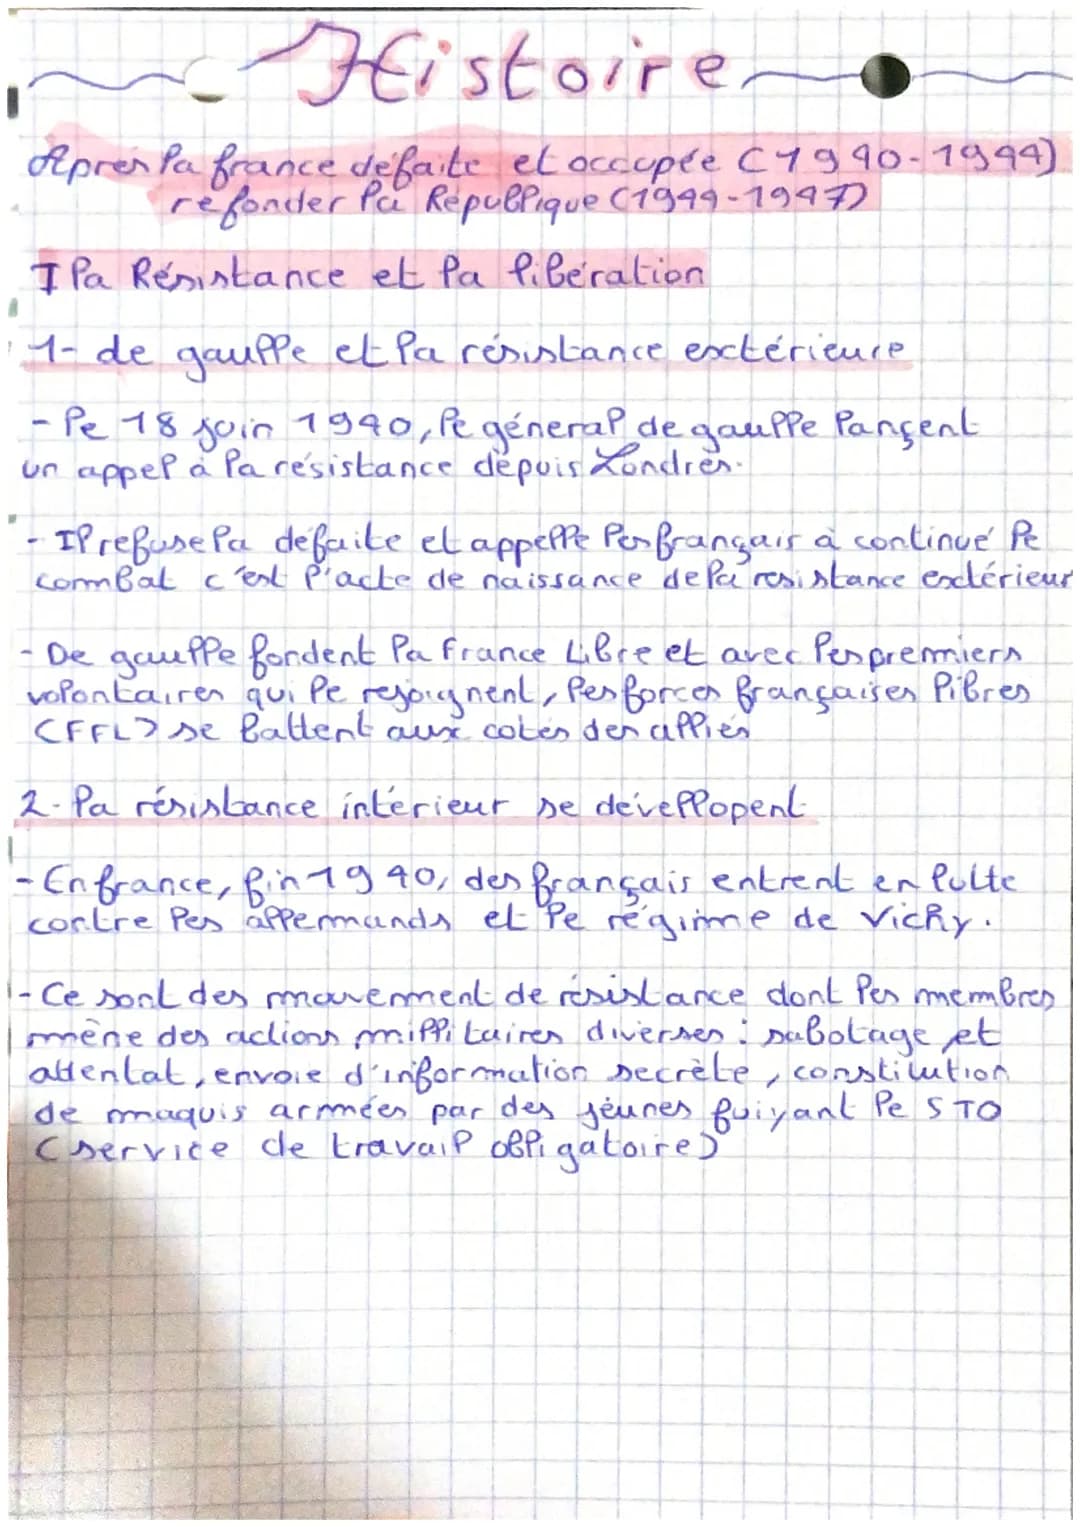 Histoire
Apres la france défaite et occupée (1940-1944)
refonder la République (1944-1947)
I la Résistance et la libération
1- de gaulle et la résistance exctérieure
- le 18 juin 1940, le géneral de gaulle lançent
un appel à la résistance depuis Londres.
- Il refuse la défaite et appelle les français à continué le
combat c'est l'acte de naissance de la resistance exctérieur
- De gaulle fondent la france Libre et avec les premiers
volontaires qui le rejoignent, les forces françaises libres
(FFL) se battent aux cotés des alliés
2- la résistance intérieur se devellopent
- En france, fin 1940, des français entrent en lutte
contre les allemands et le régime de Vichy.
- Ce sont des mouvement de résistance dont les membres
mène des actions millitaires diverses : sabotage et
attentat, envoie d'information secrète, constitution
de maquis armées par des jeunes fuiyant le STO
(service de travail obligatoire)